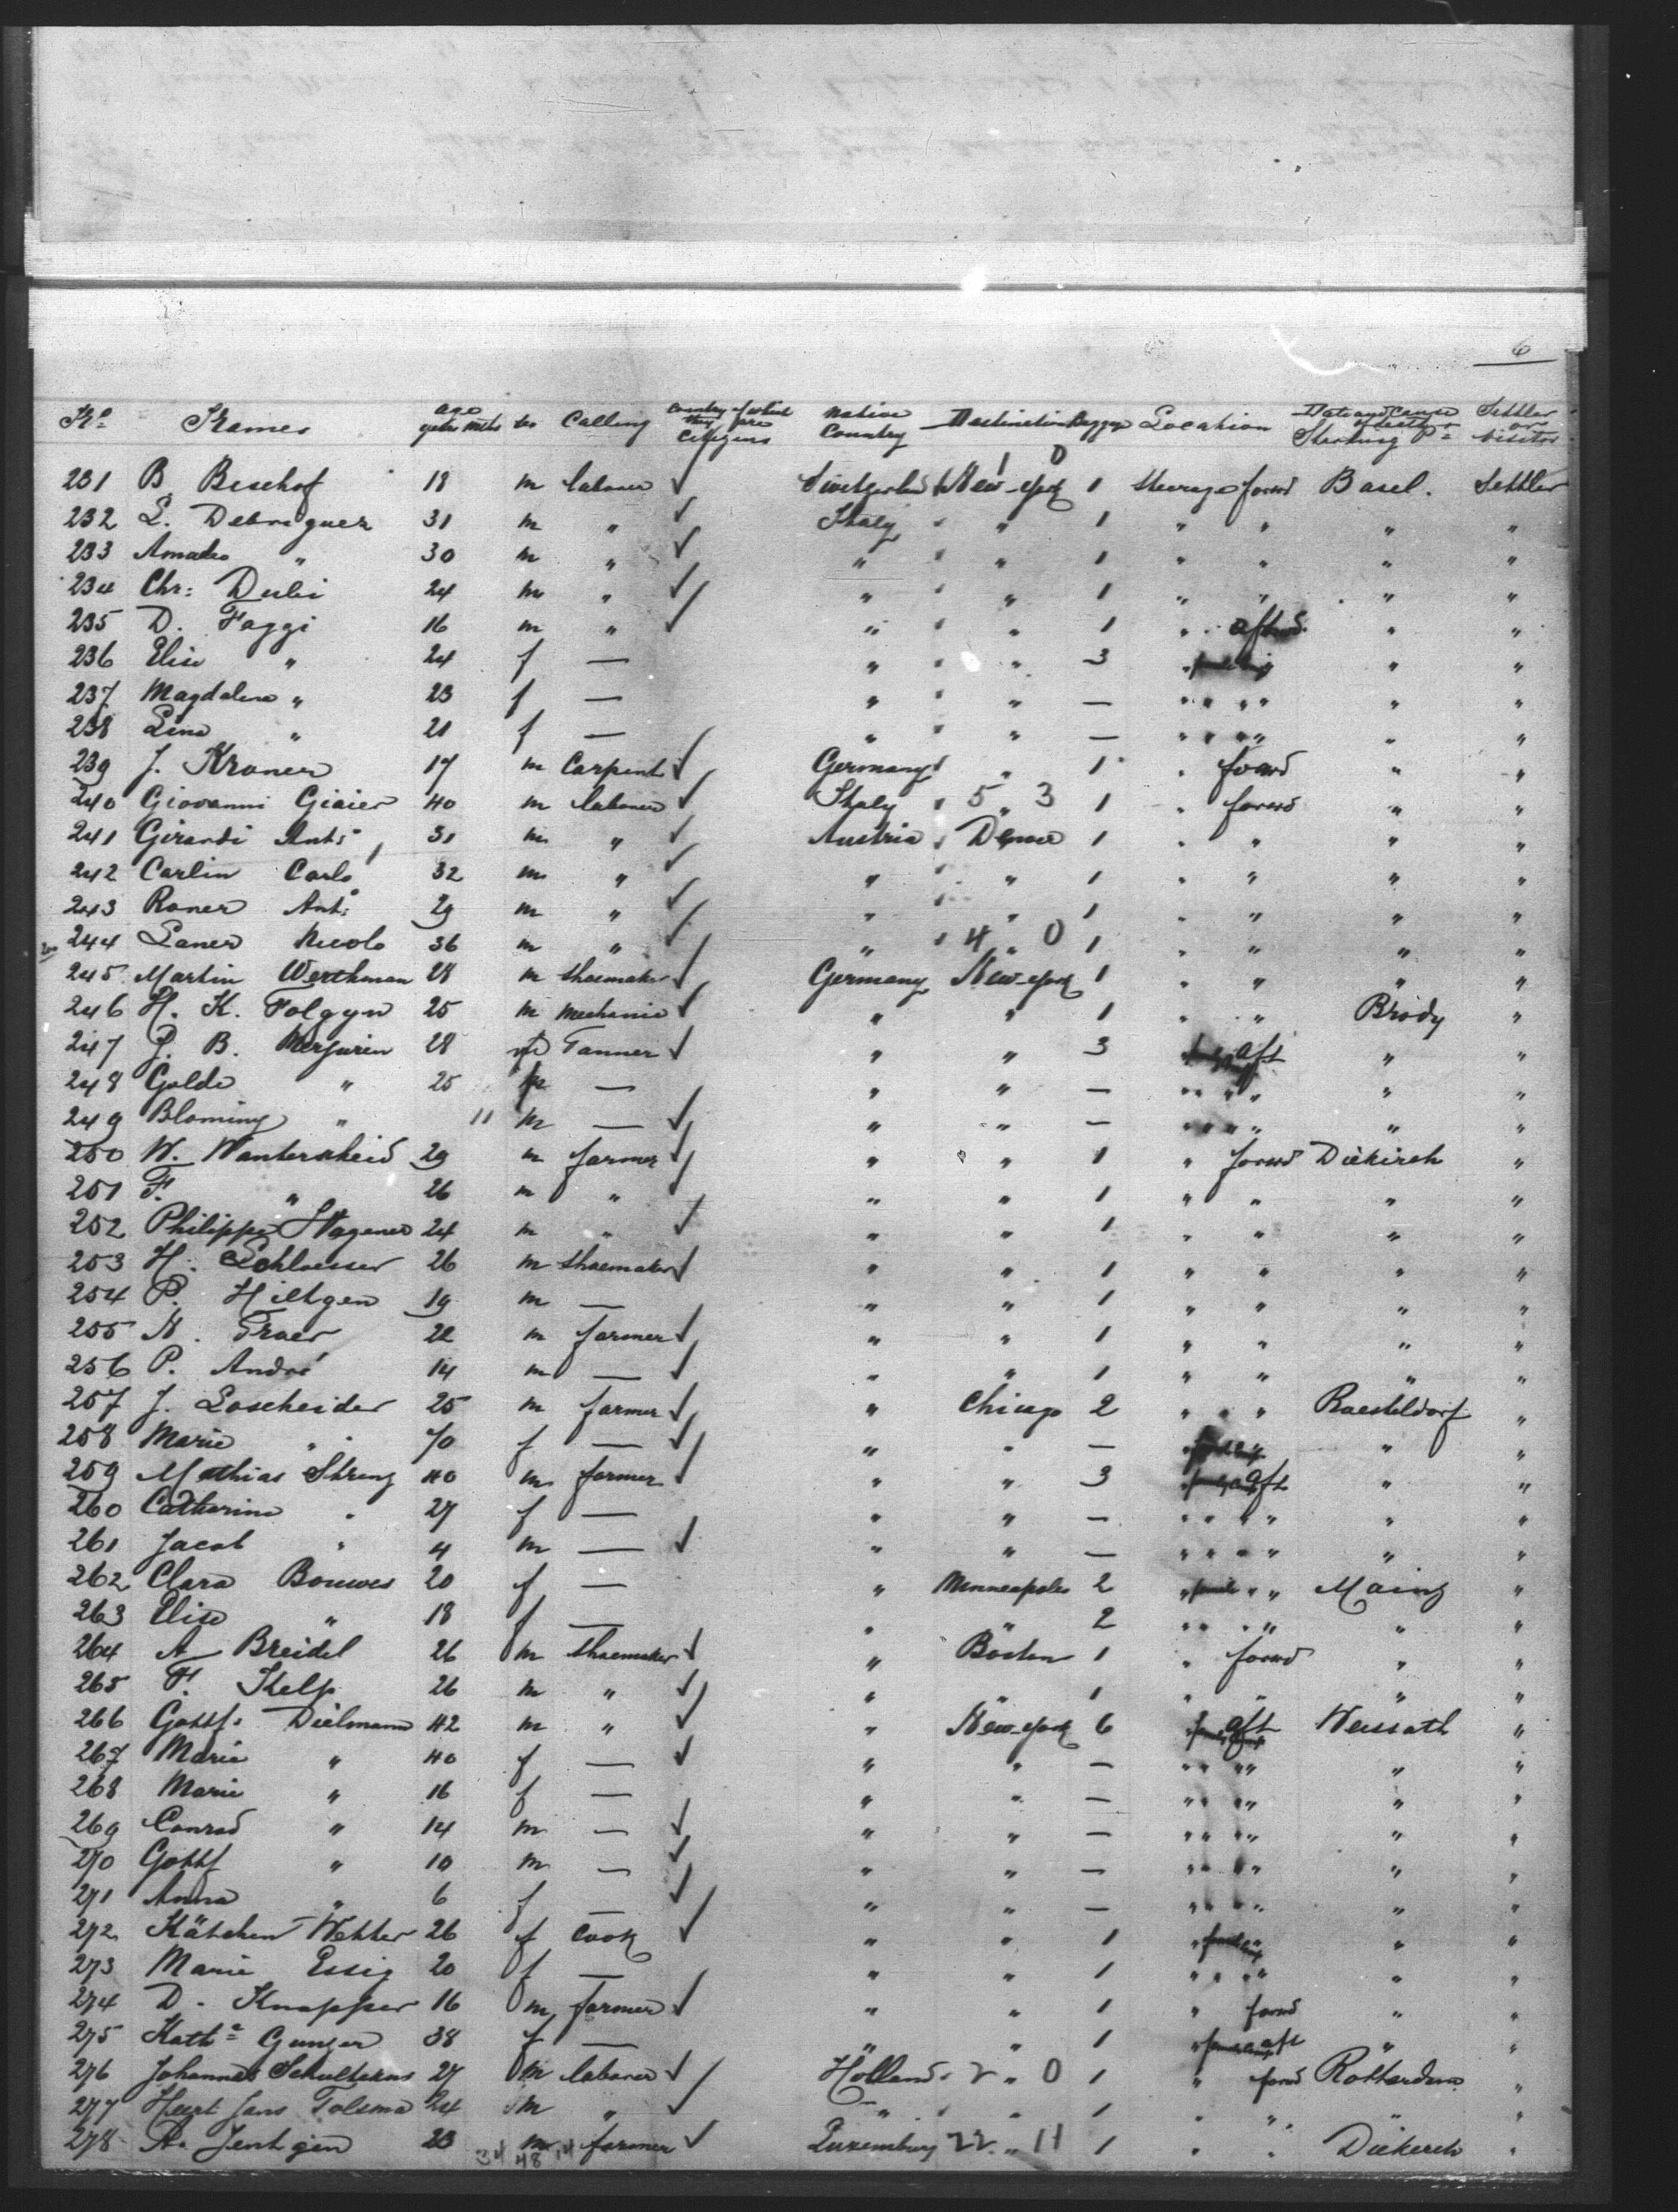 6
No Names age years mths sex Calling Country of which they are Citizens Native Country Destination Baggage Location Date and Cause of death Starting Pt Settler or visitor
1 0
231 B Beschof 18 m laborer ✓ Switzerland New-York 1 Steerage forwd Basel. Settler
232 L. 31 m " ✓ Italy " 1 " " " "
233 Amadeo " 30 m " ✓ " " 1 " " " "
234 Chr: 24 m " ✓ " " 1 " " " "
235 D. Faggi 16 m " ✓ " " 1 " " "
236 Elise " 24 f — " " 3 " " "
237 Magdalena " 23 f — " " — " " " " " "
238 Lina " 21 f — " " — " " " " " "
239 J. Kroner 17 m Carpent ✓ Germany " 1 " forwd " "
240 Giovanni Giaier 40 m laborer ✓ Italy 5 " 3 1 " forwd " "
241 Girardi Anto 31 m " ✓ Austria 1 " " " "
242 Carlin Carlo 32 m " ✓ " " 1 " " " "
243 Roner Anto 29 m " ✓ " " 1 " " " "
244 Laner Nicolo 36 m " ✓ " 4 " 0 1 " " " "
245 Martin Werthman 28 m shoemaker ✓ Germany New-York 1 " " " "
246 H. K. Folgyn 25 m mechanic ✓ " " 1 " " Brody "
247 B. 28 Tanner ✓ " " 3 aft " "
248 Golde " 25 — " " — " " " " " "
249 Bloming " 11 m — ✓ " " — " " " " " "
250 W. Wanterscheid 29 m farmer ✓ " " 1 " forwd Diekirch "
251 F. " 26 m " ✓ " " 1 " " " "
252 Philippe Wagener 24 m " ✓ " " 1 " " " "
253 H. Schloesser 26 m shoemaker ✓ " " 1 " " " "
254 P. Hiltgen 19 m — " " 1 " " " "
255 N. 22 m farmer ✓ " " 1 " " " "
256 P. André 14 m — ✓ " " 1 " " " "
257 J. Loscheider 25 m farmer ✓ " Chicago 2 " " " "
258 Marie " 70 f — ✓ " " — " "
259 Mathias Streng 40 m farmer ✓ " " 3 aft " "
260 Catharina " 27 f — " " — " " " " " "
261 Jacob " 4 m — ✓ " " — " " " " " "
262 Clara Bouwes 20 f — " Minneapolis 2 " " " Mainz "
263 Elise " 18 f — " " 2 " " " " " "
264 A Breidel 26 m shoemaker ✓ " Boston 1 " forwd " "
265 F. 26 m " ✓ " " 1 " " " "
266 Gottf: Dielmann 42 m " ✓ " New-York 6 aft "
267 Marie " 40 f — ✓ " " — " " " " " "
268 Marie " 16 f — " " — " " " " " "
269 Conrad " 14 m — ✓ " " — " " " " " "
270 Gottf " 10 m — ✓ " " — " " " " " "
271 Anna " 6 f — ✓ " " — " " " " " "
272 Kätchen 26 f Cook ✓ " " 1 " "
273 Marie Essig 20 f — " " 1 " " " " " "
274 D. Knapper 16 m farmer ✓ " " 1 " forwd " "
275 Katha Gunzer 38 f — " " 1 aft " "
276 Johannes 27 m laborer ✓ Holland 2 " 0 1 " forwd Rotterdam "
277 Jans Tolsma 24 m " ✓ " " 1 " " " "
278 A. Jentgen 23 m farmer ✓ Luxemburg 22 " 11 1 " " Diekerch "
34 48 14